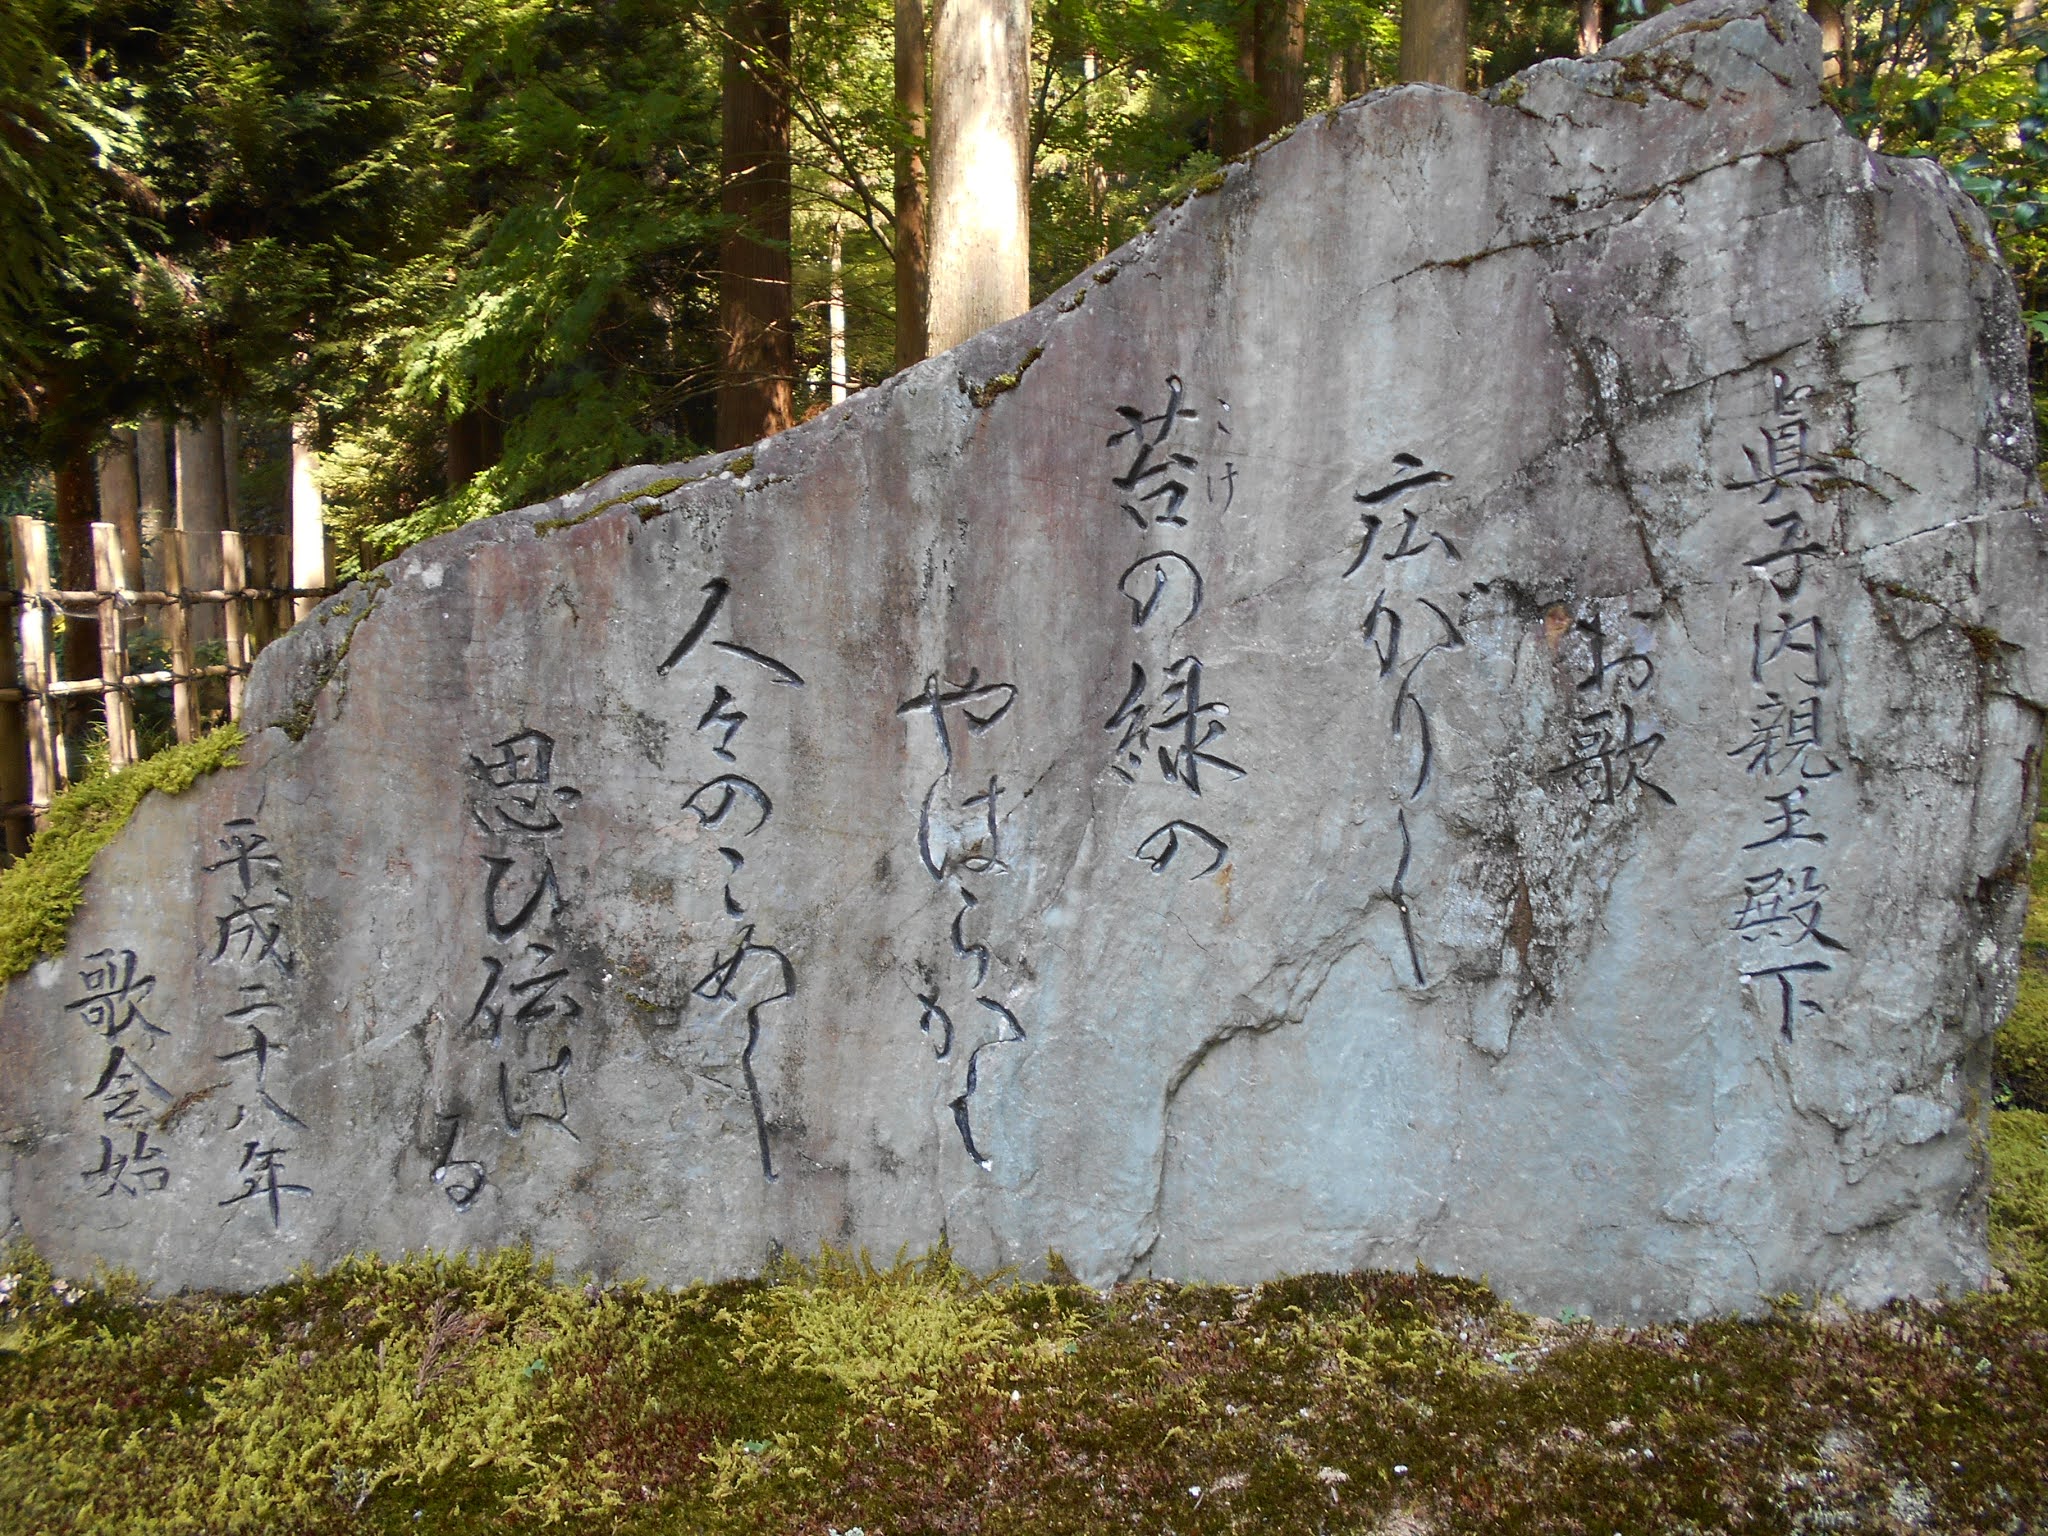 眞子内親王殿下
お歌
広がりし
こけ
苔の緑の
やはらかく
人々のこめし
思ひ伝はる
平成二十八年
歌会始